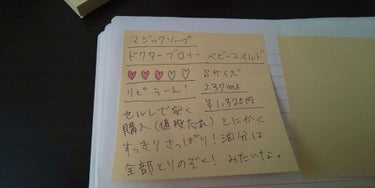 マジックソープ
ドクターブロナー ベビーマイルド
♥♥♥♡♡ Sサイズ
リピうーん! 237ml
¥1,320円
セルしで安く
購入(値段忘れ)とにかく
すっきりさっぱり!油分は
全部とりのぞく!みたいな。